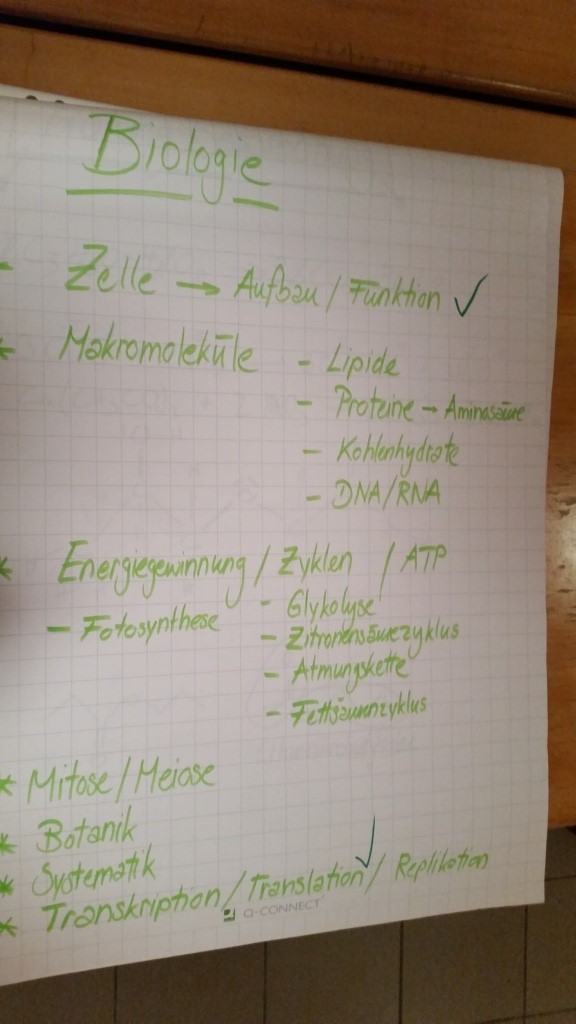 Biologie
- Zelle → Aufbau / Funktion ✓
* Makromoleküle - Lipide
- Proteine → Aminosäure
- Kohlenhydrate
- DNA/RNA
* Energiegewinnung / Zyklen / ATP
- Fotosynthese - Glykolyse
- Zitronensäurezyklus
- Atmungskette
- Fettsäurenzyklus
* Mitose / Meiose
* Botanik
* Systematik
* Transkription / Translation ✓ / Replikation
Q-CONNECT